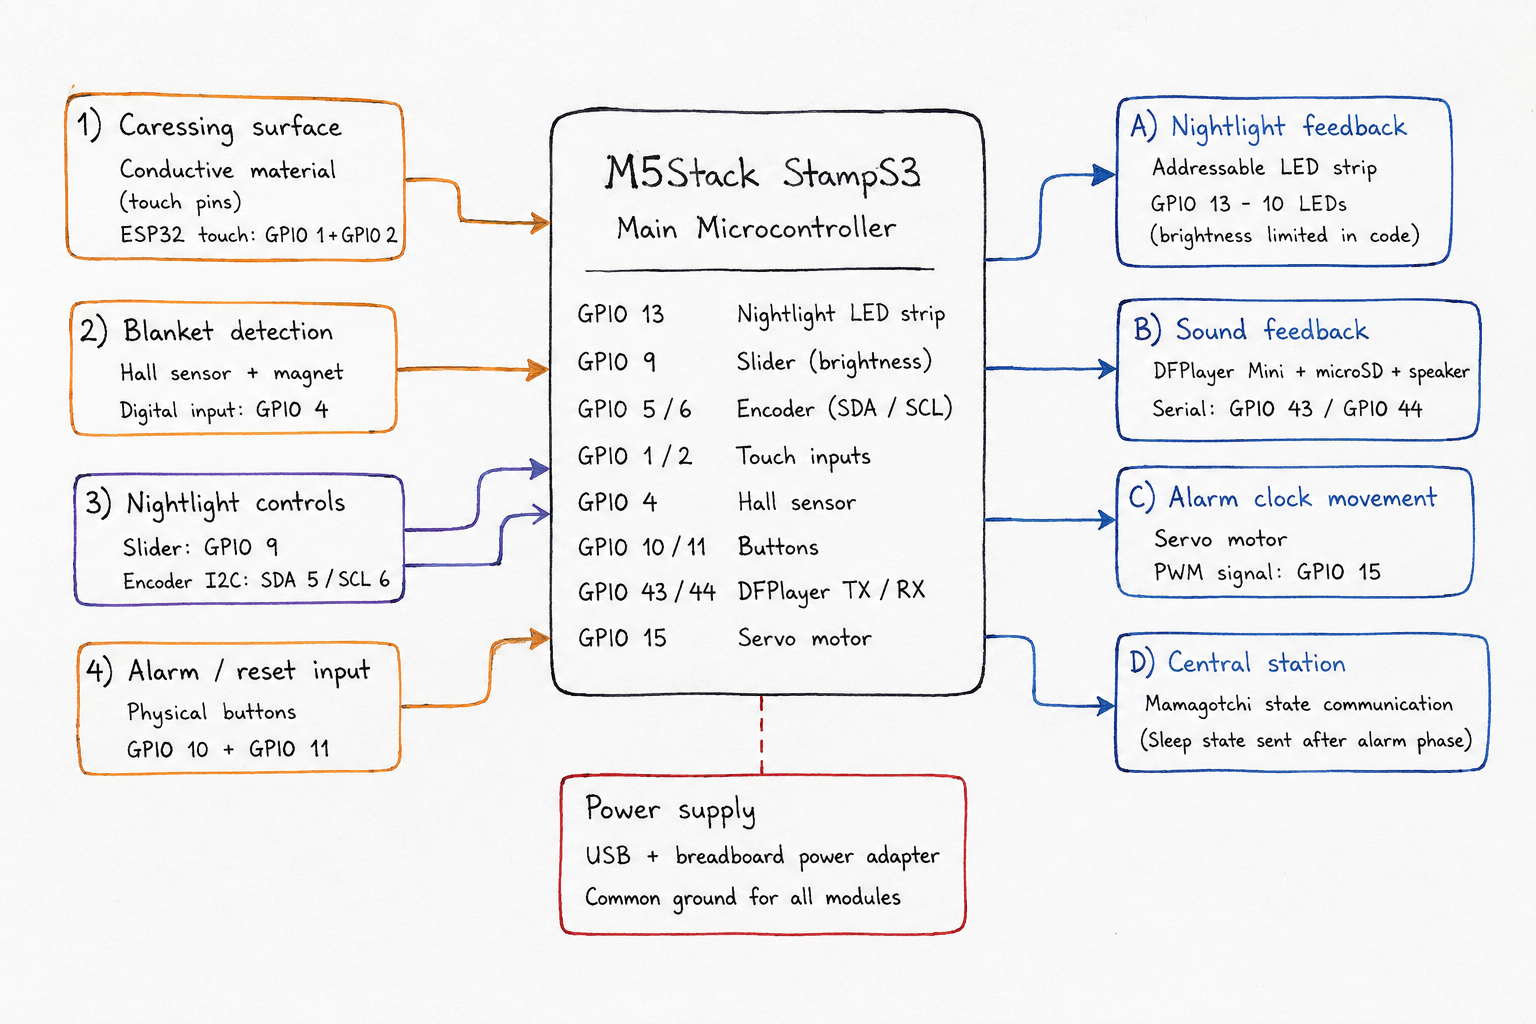 1) Caressing surface
Conductive material
(touch pins)
ESP32 touch: GPIO 1 + GPIO 2
2) Blanket detection
Hall sensor + magnet
Digital input: GPIO 4
3) Nightlight controls
Slider: GPIO 9
Encoder I2C: SDA 5 / SCL 6
4) Alarm / reset input
Physical buttons
GPIO 10 + GPIO 11
M5Stack StampS3
Main Microcontroller
GPIO 13 Nightlight LED strip
GPIO 9 Slider (brightness)
GPIO 5 / 6 Encoder (SDA / SCL)
GPIO 1 / 2 Touch inputs
GPIO 4 Hall sensor
GPIO 10 / 11 Buttons
GPIO 43 / 44 DFPlayer TX / RX
GPIO 15 Servo motor
Power supply
USB + breadboard power adapter
Common ground for all modules
A) Nightlight feedback
Addressable LED strip
GPIO 13 - 10 LEDs
(brightness limited in code)
B) Sound feedback
DFPlayer Mini + microSD + speaker
Serial: GPIO 43 / GPIO 44
C) Alarm clock movement
Servo motor
PWM signal: GPIO 15
D) Central station
Mamagotchi state communication
(Sleep state sent after alarm phase)